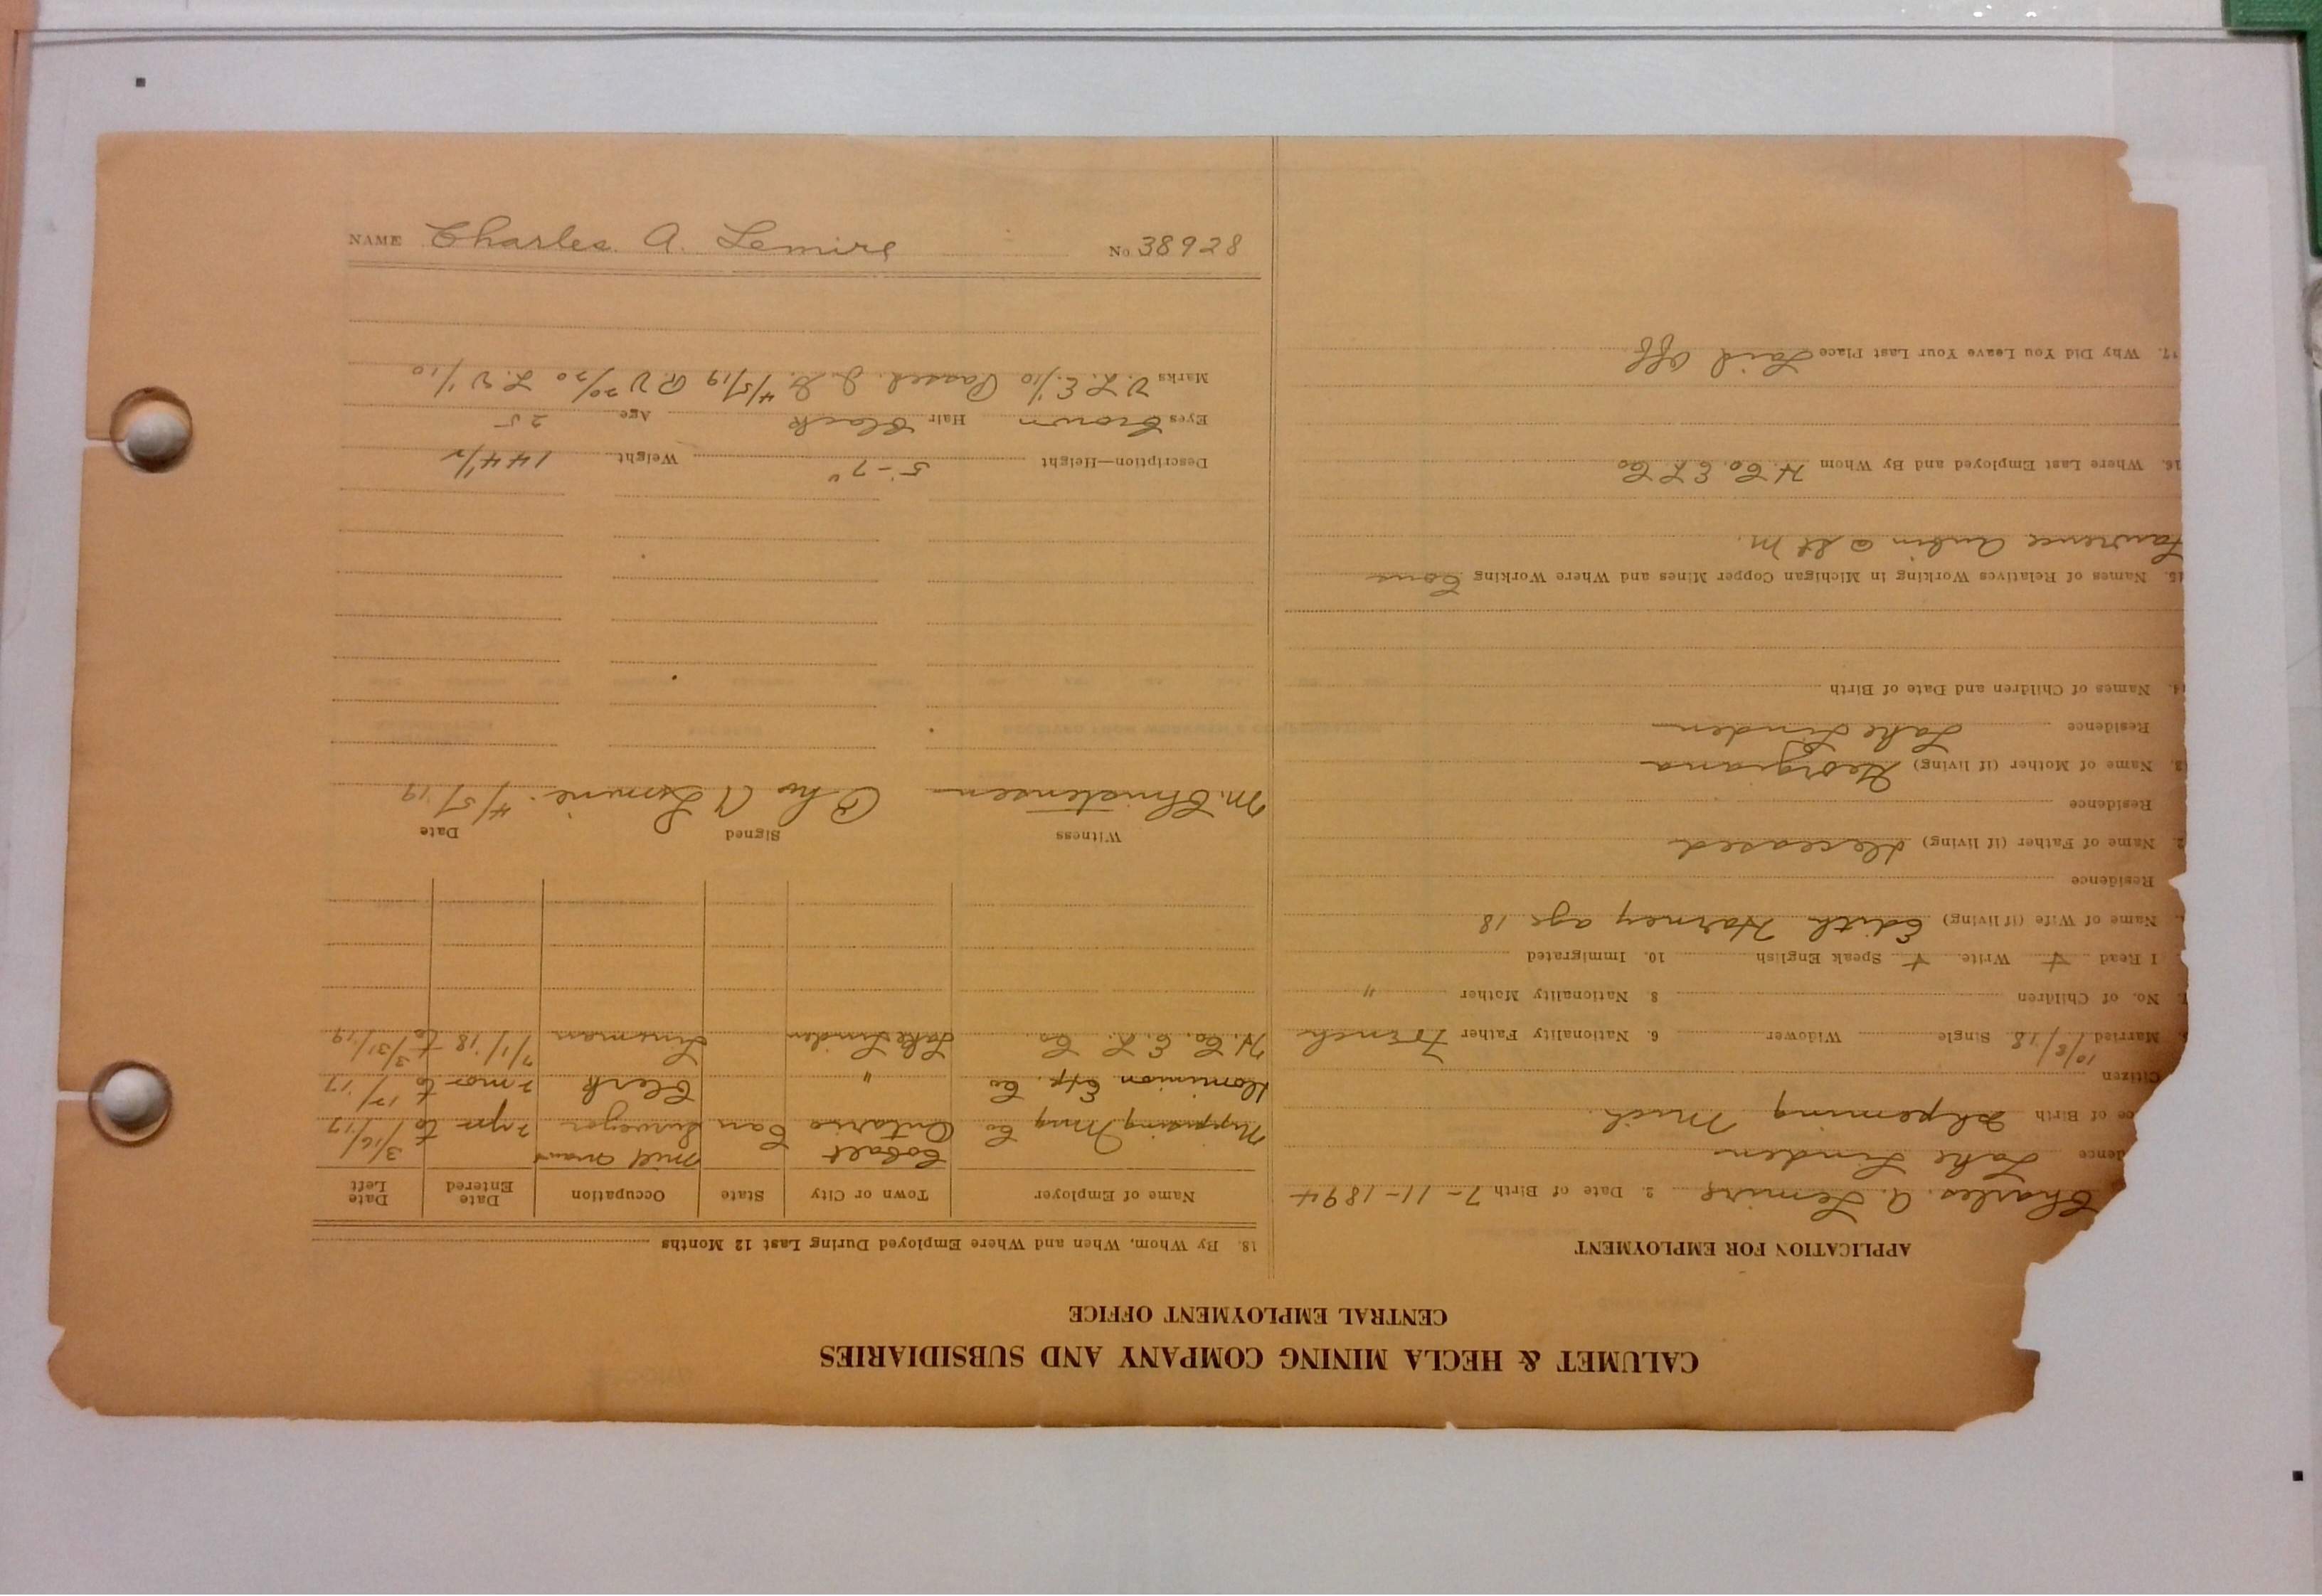 CALUMET & HECLA MINING COMPANY AND SUBSIDIARIES
CENTRAL EMPLOYMENT OFFICE
APPLICATION FOR EMPLOYMENT
Charles. A. Lemire 2. Date of Birth 7-11-1894
dence Lake Linden
ce of Birth Ishpeming Mich.
Citizen
Married 10/8/18 Single Widower 6. Nationality Father French
7. No. of Children 8. Nationality Mother "
I Read + Write + Speak English 10. Immigrated
Name of Wife (if living) Edith Harney age 18
Residence
2. Name of Father (if living) deceased
Residence
3. Name of Mother (if living) Georgiana
Residence Lake Linden
14. Names of Children and Date of Birth
15. Names of Relatives Working in Michigan Copper Mines and Where Working Cous
Lawrence Aubin @ St M.
16. Where Last Employed and By Whom H. Co. E L Co
17. Why Did You Leave Your Last Place Laid Off
18. By Whom, When and Where Employed During Last 12 Months
Name of Employer Town or City State Occupation Date Entered Date Left
Cobalt Mill 3/16/
Nipissing Mng Co Ontario Can Surveyor 2 yrs to /17
Dominion Exp. Co " Clerk 2 mos to 17/17
H. Co. E. L. Co Lake Linden Lineman 7/1/18 to 3/31/19
Witness Signed Date
M. Christensen Chas A Lemire 4/5/19
Description—Height 5'-7" Weight 144 1/2
Eyes Brown Hair Black Age 25
Marks V. L. E. 1/10 Passed 4/5/19 R V 20/20 L. V 1/10
NAME Charles. A. Lemire No 38928